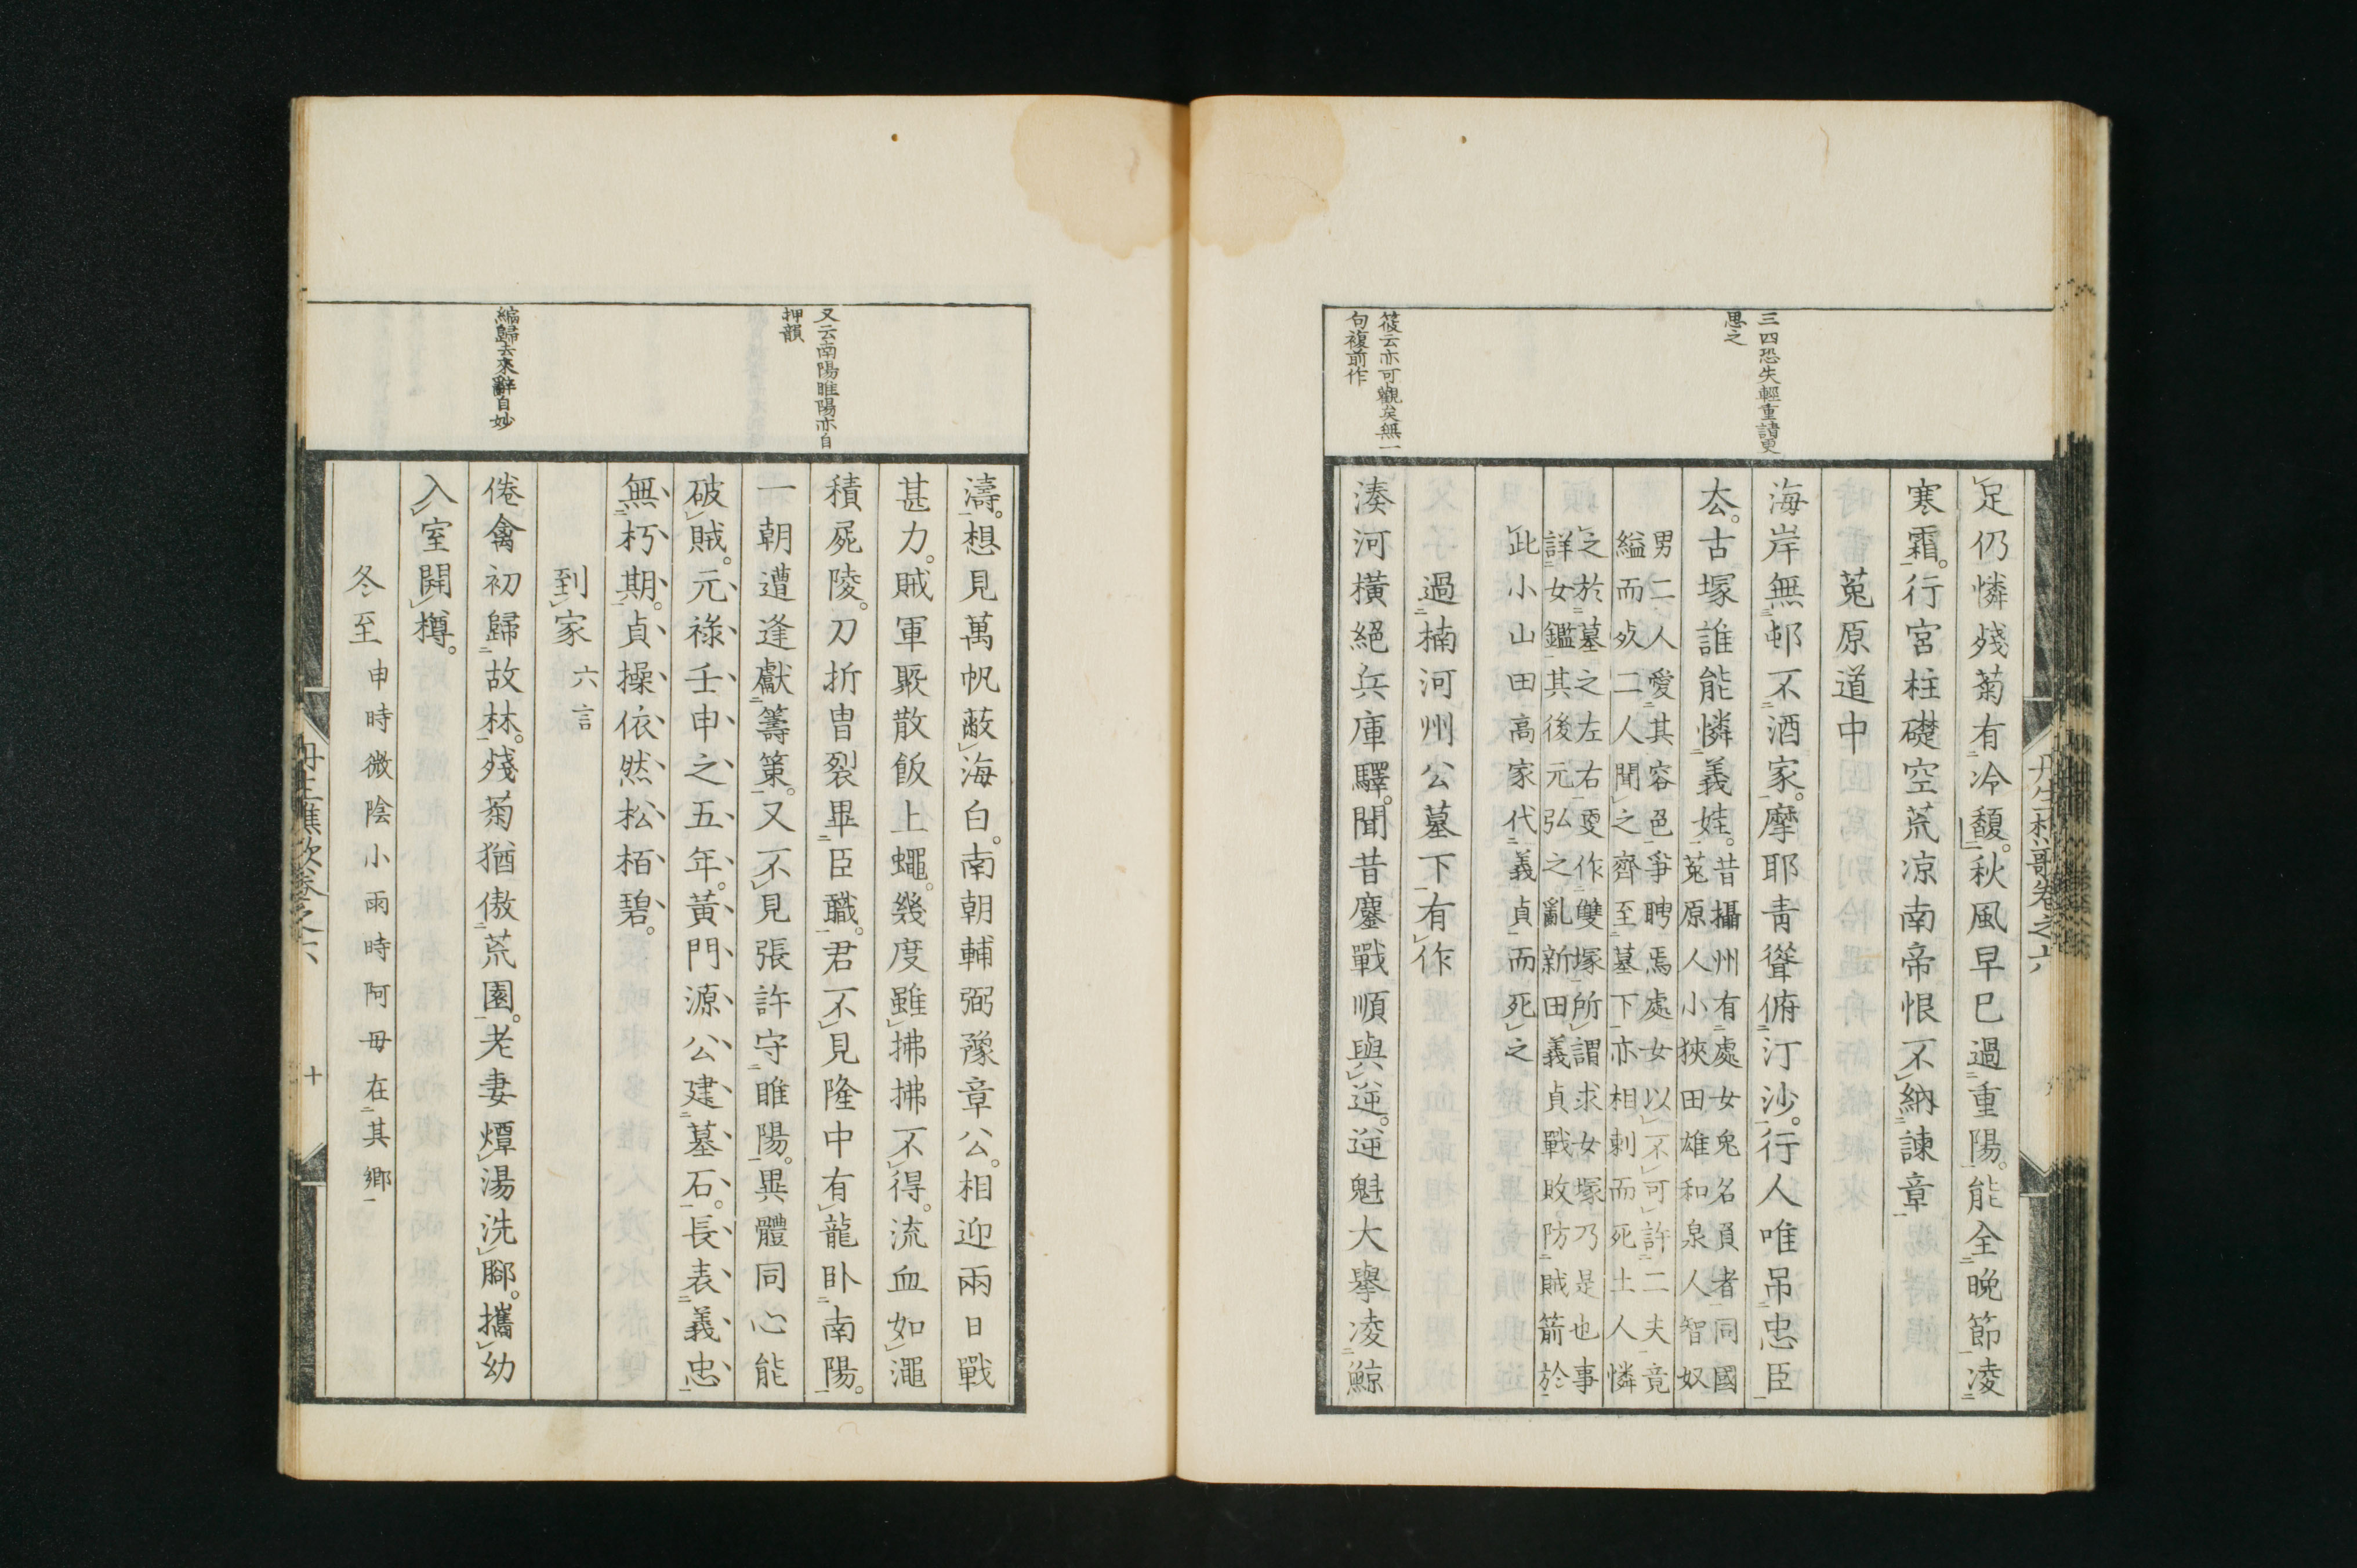 三四恐失輕重請更
思之
筱云亦可觀矣無一
句複前作
足仍憐殘菊有冷馥。秋風早已過重陽。能全晚節凌
寒霜。行宮柱礎空荒涼南帝恨不納諫章
菟原道中
海岸無邨不酒家。摩耶青聳俯汀沙。行人唯吊忠臣
去。古塚誰能憐義娃。昔攝州有處女兔名負者同國
菟原人小狹田雄和泉人智奴
男二人愛其容色爭聘焉處女以不可許二夫竟
縊而死二人聞之齊至墓下亦相刺而死土人憐
之於墓之左右更作雙塚所謂求女塚乃是也事
詳女鑑其後元弘之亂新田義貞戰敗防賊箭於
此小山田高家代義貞而死之
過楠河州公墓下有作
湊河橫絕兵庫驛。聞昔鏖戰順與逆。逆魁大擧凌鯨
丹生樵歌卷之六
又云南陽睢陽亦自
押韻
編歸去來辭自妙
濤。想見萬帆蔽海白。南朝輔弼豫章公。相迎兩日戰
甚力。賊軍聚散飯上蠅。幾度雖拂拂不得。流血如澠
積屍陵。刀折冑裂畢臣職。君不見隆中有龍臥南陽。
一朝遭逢獻籌策。又不見張許守睢陽。異體同心能
破賊。元祿壬申之五年。黃門源公建墓石。長表義忠
無朽期。貞操依然松栢碧。
到家 六言
倦禽初歸故林。殘菊猶傲荒園。老妻燂湯洗腳。攜幼
入室開樽。
冬至 申時微陰小雨時阿母在其鄉
丹生樵歌卷之六
十